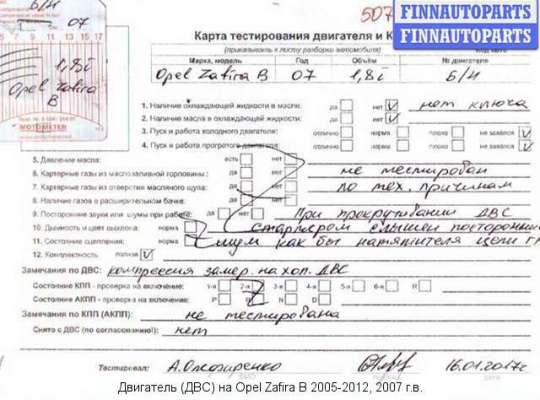 507
FINNAUTOPARTS
FINNAUTOPARTS
5 7 9 11 13 15 17
07
1,8i
Opel Zafira
B
MOTOMETER
Карта тестирования двигателя и К
(прикалывать к листу разборки автомобиля)
Марка, модель Год Объём № двигателя
Opel Zafira B 07 1,8i Б/Н
1. Наличие охлаждающей жидкости в масле: да нет нет ключа
2. Наличие масла в охлаждающей жидкости: да нет
3. Пуск и работа холодного двигателя: отлично норма плохо не завёлся
4. Пуск и работа прогретого двигателя: отлично норма плохо не завёлся
5. Давление масла: есть нет
6. Картерные газы из маслозаливной горловины: да нет не тестирован
7. Картерные газы из отверстия масляного щупа: да нет по тех. причинам
8. Наличие газов в расширительном бачке: да нет
9. Посторонние звуки или шумы при работе: да нет При прокручивании ДВС
10. Дымность и цвет выхлопа: норма стартером слышен посторонни
11. Состояние сцепления: норма шум как бы натяжителя цепи Г
12. Комплектность: полная
Замечания по ДВС: компрессия замер. на хол. ДВС
Состояние КПП - проверка на включение: 1-я 2-я 3-я 4-я 5-я 6-я R
Состояние АКПП - проверка на включение: P R N D
Замечания по КПП (АКПП): не тестирована
Снято с ДВС (по согласованию!): нет
Тестировал: 16.01.2017г.
Двигатель (ДВС) на Opel Zafira B 2005-2012, 2007 г.в.